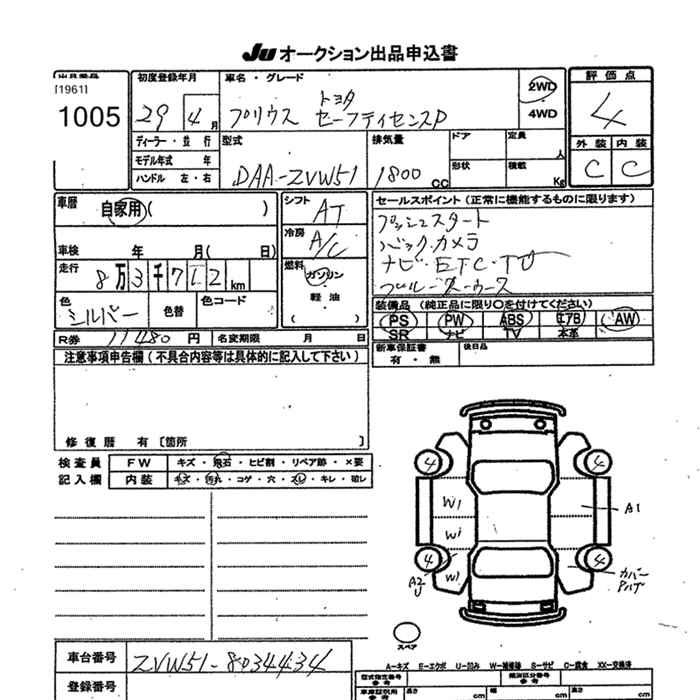 JU オークション出品申込書
出品番号
[1961]
1005
初度登録年月
29 4月
車名・グレード
トヨタ
プリウス セーフティセンスP
2WD
・
4WD
評価点
4
外装 内装
C C
ディーラー・並行
モデル年式 年
ハンドル 左・右
型式
DAA-ZVW51
排気量
1800 CC
ドア
形状
定員 人
積載 Kg
車歴
自家用( )
車検 年 月( 日)
走行
8万3千712km
色
シルバー
色替
色コード
シフト
AT
冷房
A/C
燃料
ガソリン
・
軽油
( )
セールスポイント(正常に機能するものに限ります)
プッシュスタート
バックカメラ
ナビ・ETC・TV
ブルートゥース
装備品(純正品に限り○を付けてください)
PS PW ABS エアB AW
SR ナビ TV 本革
R券 11480 円
名変期限 月 日
新車保証書
有・無
後日品
注意事項申告欄(不具合内容等は具体的に記入して下さい)
修復歴 有〔箇所 〕
検査員
記入欄
FW キズ・飛石・ヒビ割・リペア跡・×要
内装 キズ・汚れ・コゲ・穴・スレ・キレ・破レ
4 4
W1 A1
W1
4 4
A2
U
W1
カバー
スペア
A-キズ E-エクボ U-凹み W-補修跡 S-サビ C-腐食 XX-交換済
車台番号 ZVW51-8034434
登録番号
型式指定番号
参考
類別区分番号
参考
車庫証明用
参考
長さ cm
幅 cm
高さ cm